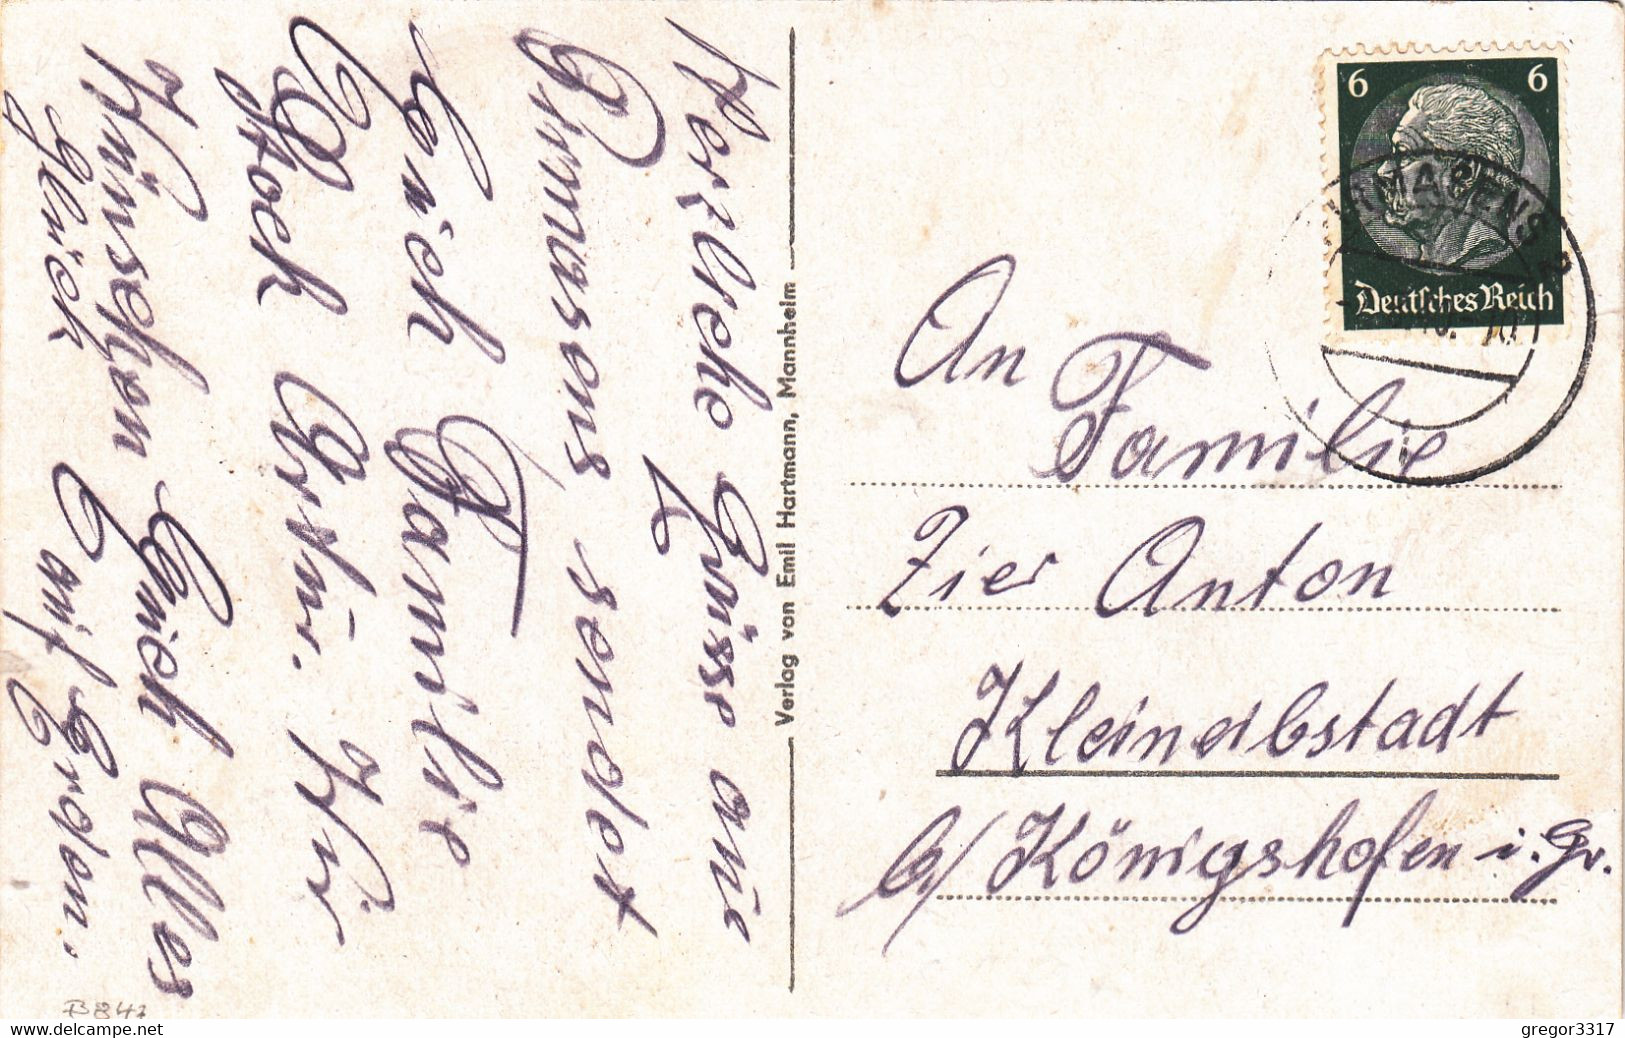 Herzliche Grüsse aus
Pirmasens, sendet
Euch Familie
Stock Artur. Wir
Wünschen Euch Alles
glück auf Erden.
Verlag von Emil Hartmann, Mannheim
6 6
Deutsches Reich
An
Familie
Zier Anton
Kleineibstadt
b/ Königshofen i. Gr.
B 847
gregor3317